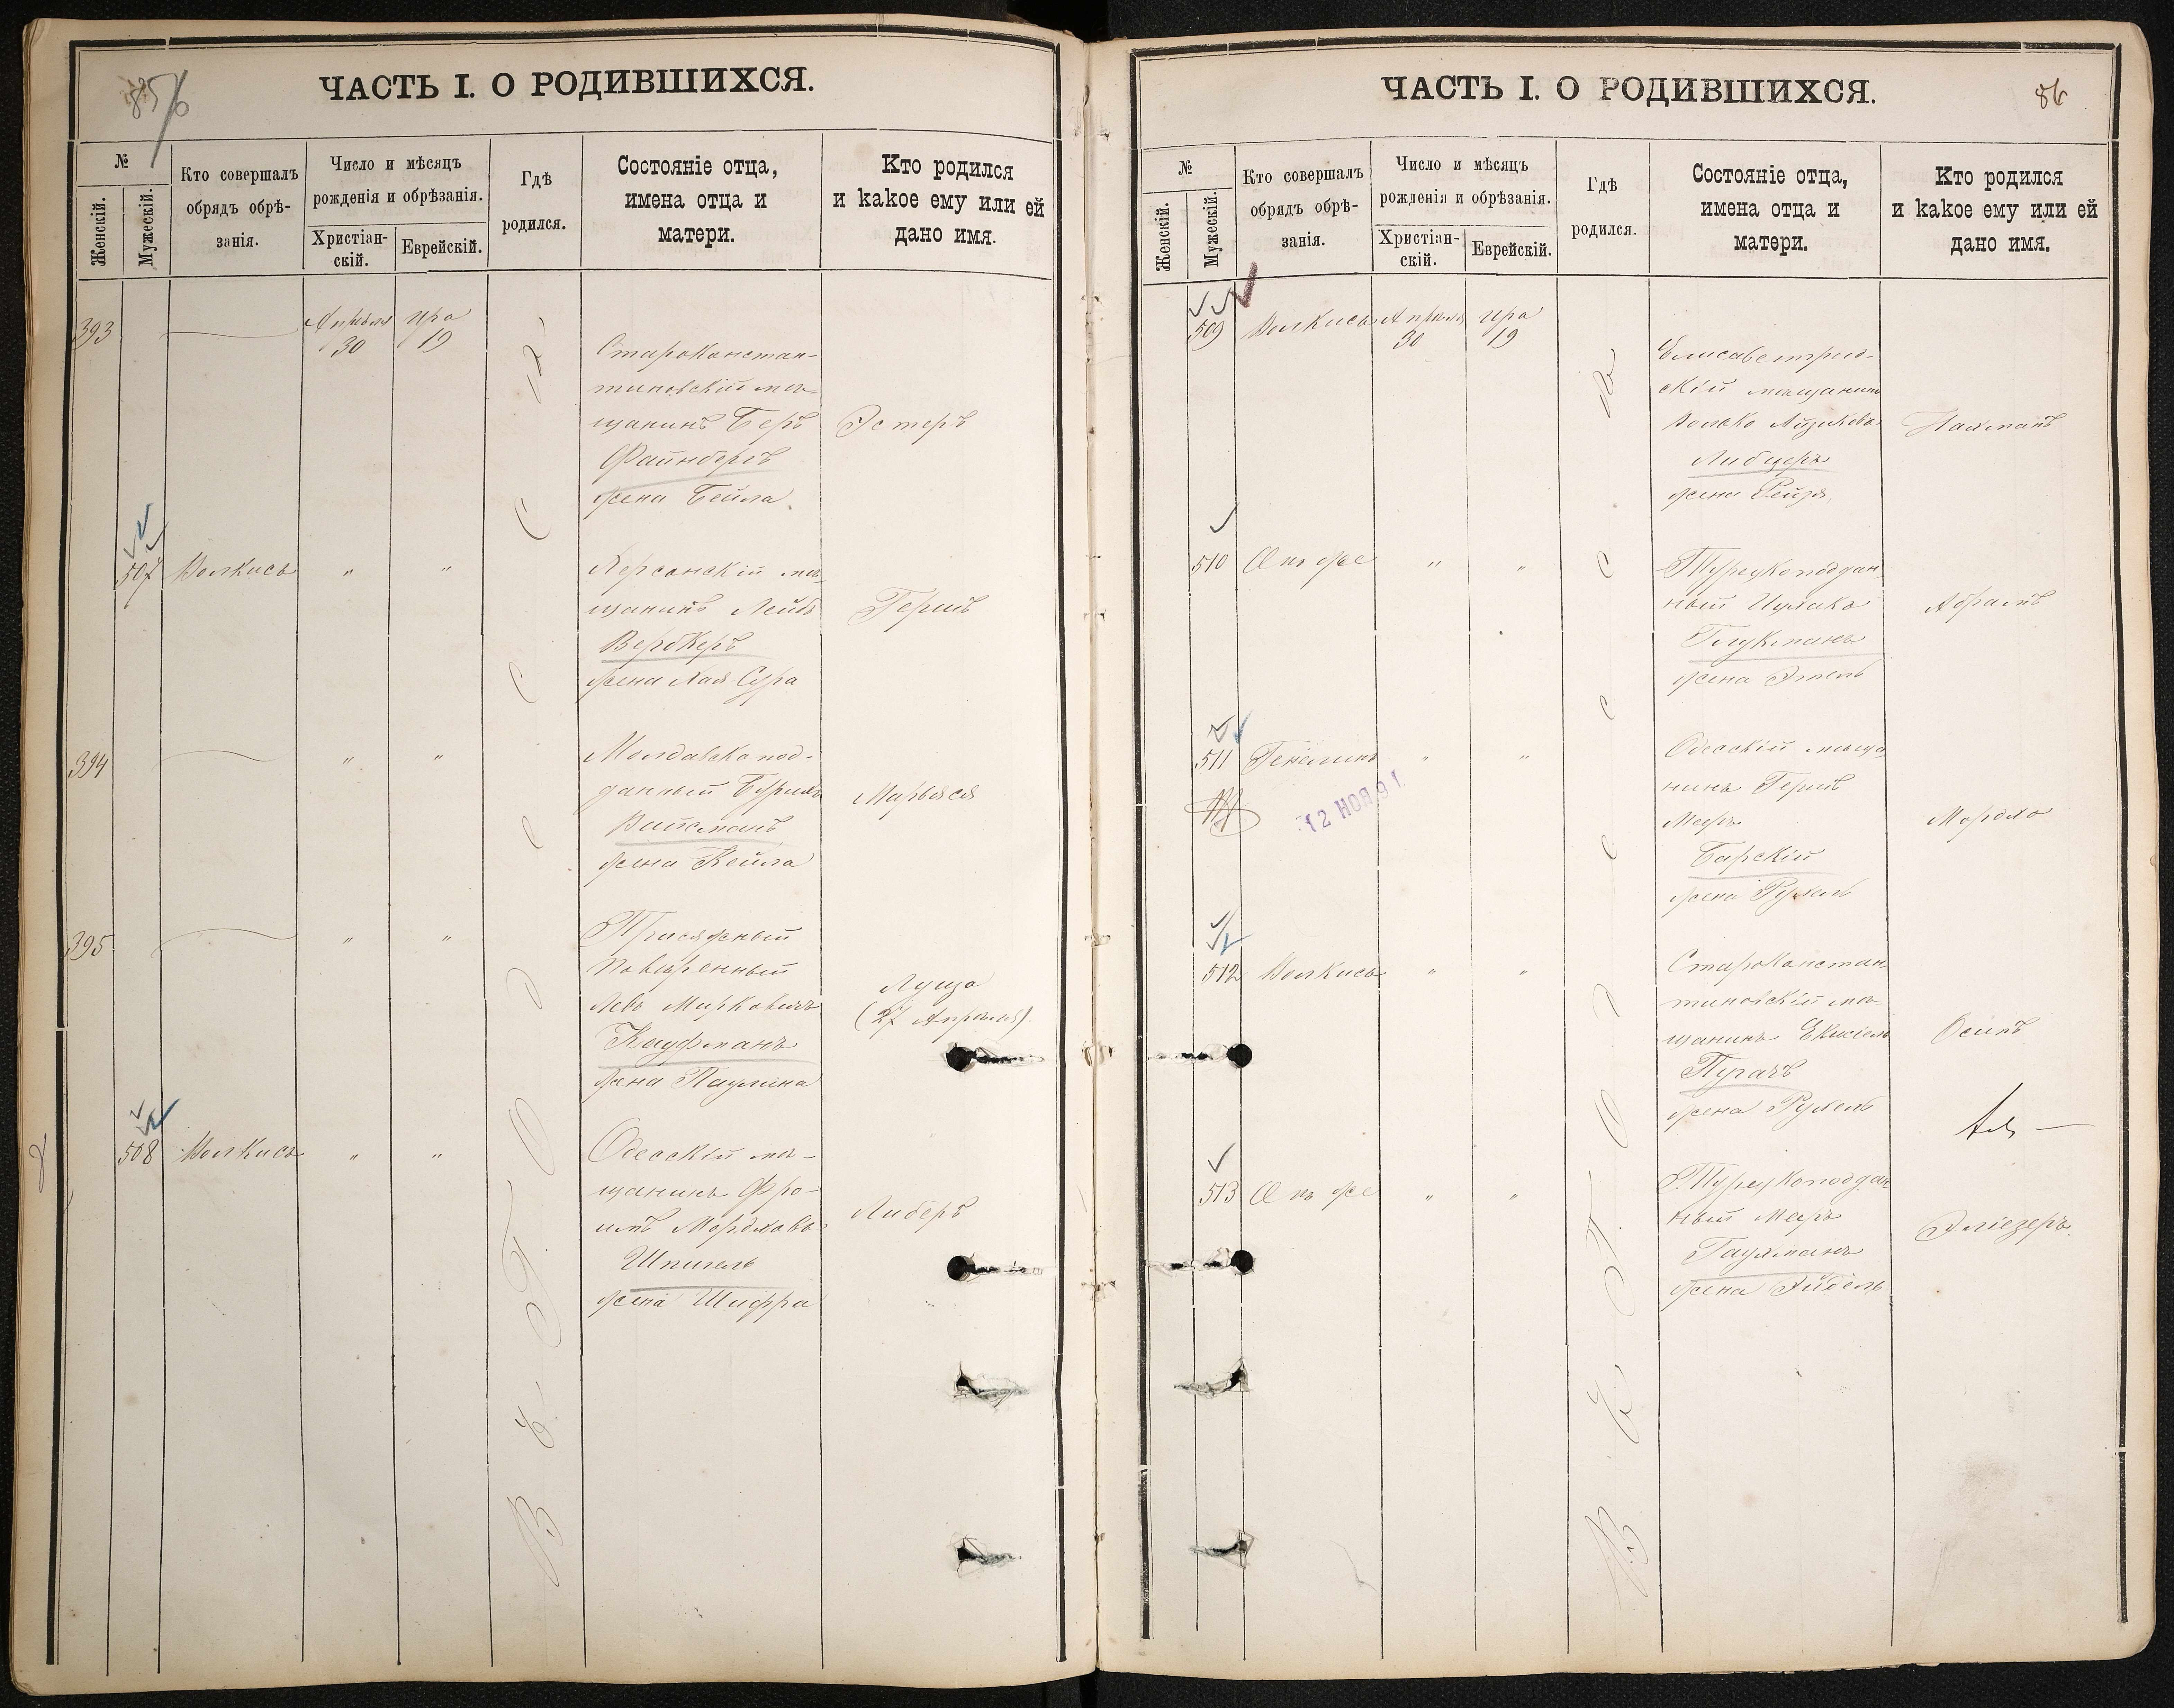 85/6
ЧАСТЬ I. О РОДИВШИХСЯ.
№
Женскій.
Мужескій.
Кто совершалъ
обрядъ обрѣ-
занія.
Число и мѣсяцъ
рожденія и обрѣзанія.
Христіан-
скій.
Еврейскій.
Гдѣ
родился.
Состояніе отца,
имена отца и
матери.
Кто родился
и какое ему или ей
дано имя.
393
Апрѣля
30
Ира
19
Староконстан-
тиновскій мѣ-
щанинъ Беръ
Файнбергъ
жена Бейла
Эстеръ
507
Волкисъ
" "
Херсонскій мѣ-
щанинъ Лейбъ
Верткеръ
жена Хая Сура
Гершъ
394
" "
Молдавскопод-
данный Берилъ
Вайсманъ
жена Кейла
Марьяся
395
" "
Присяжный
повѣренный
Левъ Мирковичъ
Кауфманъ
жена Паулина
Луиза
(27 Апрѣля)
508
Волкисъ
" "
Одесскій мѣ-
щанинъ Фро-
имъ Мордковъ
Шпигель
жена Шифра
Либеръ
въ г. Одессѣ
ЧАСТЬ I. О РОДИВШИХСЯ.
86
№
Женскій.
Мужескій.
Кто совершалъ
обрядъ обрѣ-
занія.
Число и мѣсяцъ
рожденія и обрѣзанія.
Христіан-
скій.
Еврейскій.
Гдѣ
родился.
Состояніе отца,
имена отца и
матери.
Кто родился
и какое ему или ей
дано имя.
509
Волкисъ
Апрѣля
30
Ира
19
Елисаветград-
скій мѣщанинъ
Волько Айзиковъ
Либцеръ
жена Рейзя
Нахманъ
510
Онъ же
" "
Турецкоподдан-
ный Ицхако
Глукманъ
жена Этель
Абрамъ
511
" "
12 НОЯ 91
Одесскій мѣща-
нинъ Гершъ
Мееръ
Барскій
жена Рухель
Мордко
512
Волкисъ
" "
Староконстан-
тиновскій мѣ-
щанинъ Екисіель
Пугачъ
жена Рухель
Осипъ
513
Онъ же
" "
Турецкоподдан-
ный Мееръ
Гаухманъ
жена Эйдель
Эліезеръ
въ г. Одессѣ